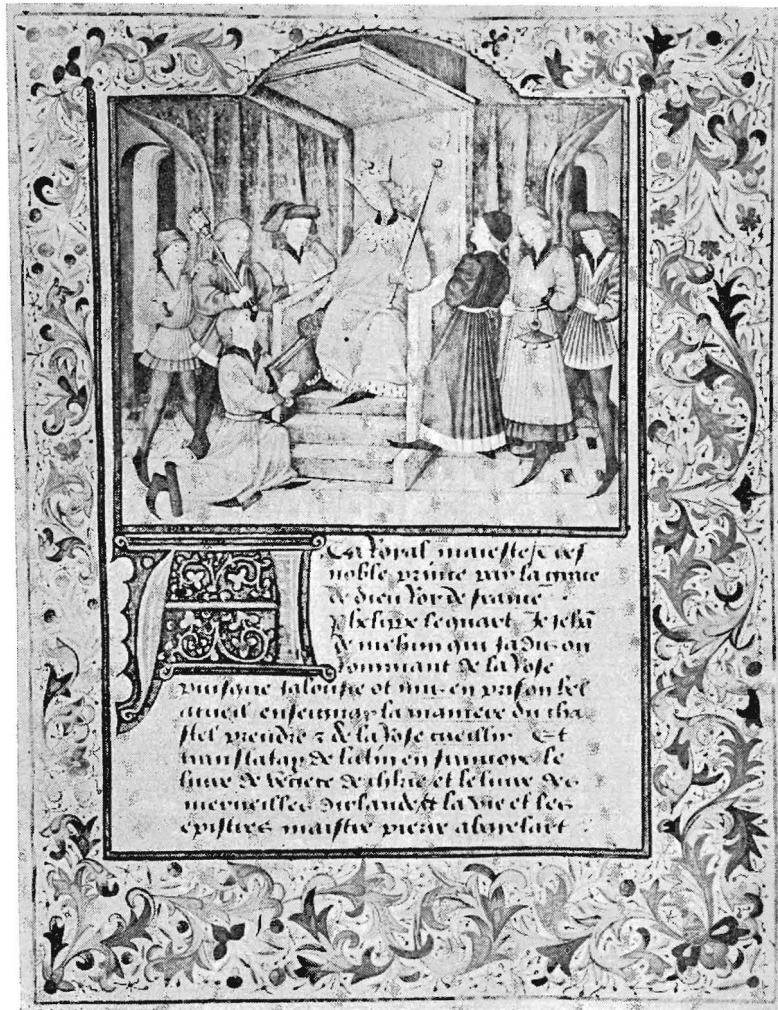 A ta royal maieste tres
noble prince par la grace
de dieu Roy de france
Phelippe le quart Je Jehā
de mehun qui jadis ou
Rommant de la Rose
puisque jalousie ot mis en prison bel
acueil enseignay la maniere du cha
stel prendre z de la Rose cueillir Et
translatay de latin en francois le
livre de vegece de chlrie et le livre des
merveilles dirlande Et la vie et les
epistres maistre pierre abaielart